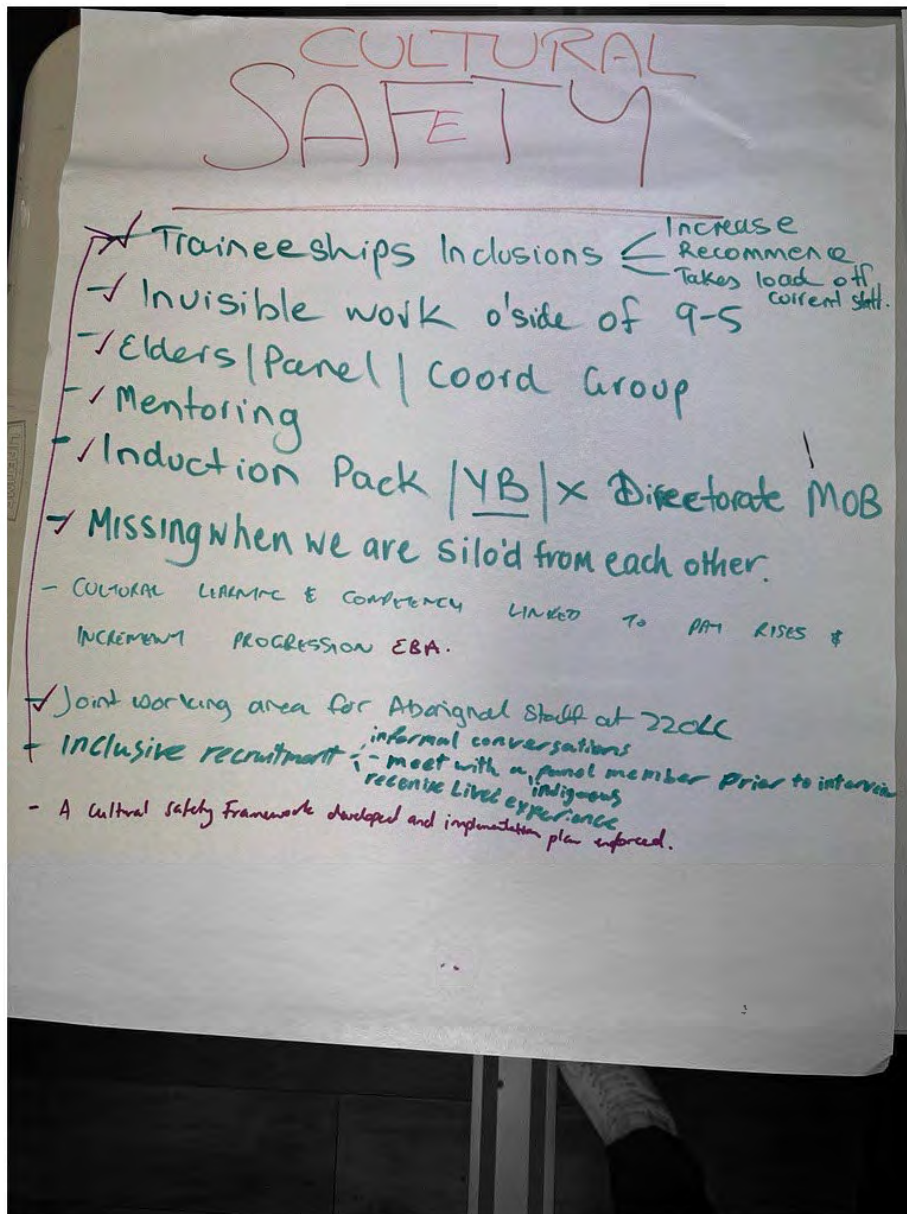 CULTURAL
SAFETY
- Traineeships Inclusions < Increase
Recommence
Takes load off
current staff.
- ✓ Invisible work o'side of 9-5
- ✓ Elders | Panel | Coord Group
- ✓ Mentoring
- ✓ Induction Pack | YB | x Directorate MOB
- ✓ Missing when we are silo'd from each other.
- CULTURAL LEARNING & COMPETENCY LINKED TO PAY RISES &
INCREMENT PROGRESSION EBA.
- ✓ Joint working area for Aboriginal Staff at
- Inclusive recruitment - informal conversations
- meet with a panel member prior to interview
indigenous
Lived experience
- A cultural safety Framework developed and implementation plan enforced.